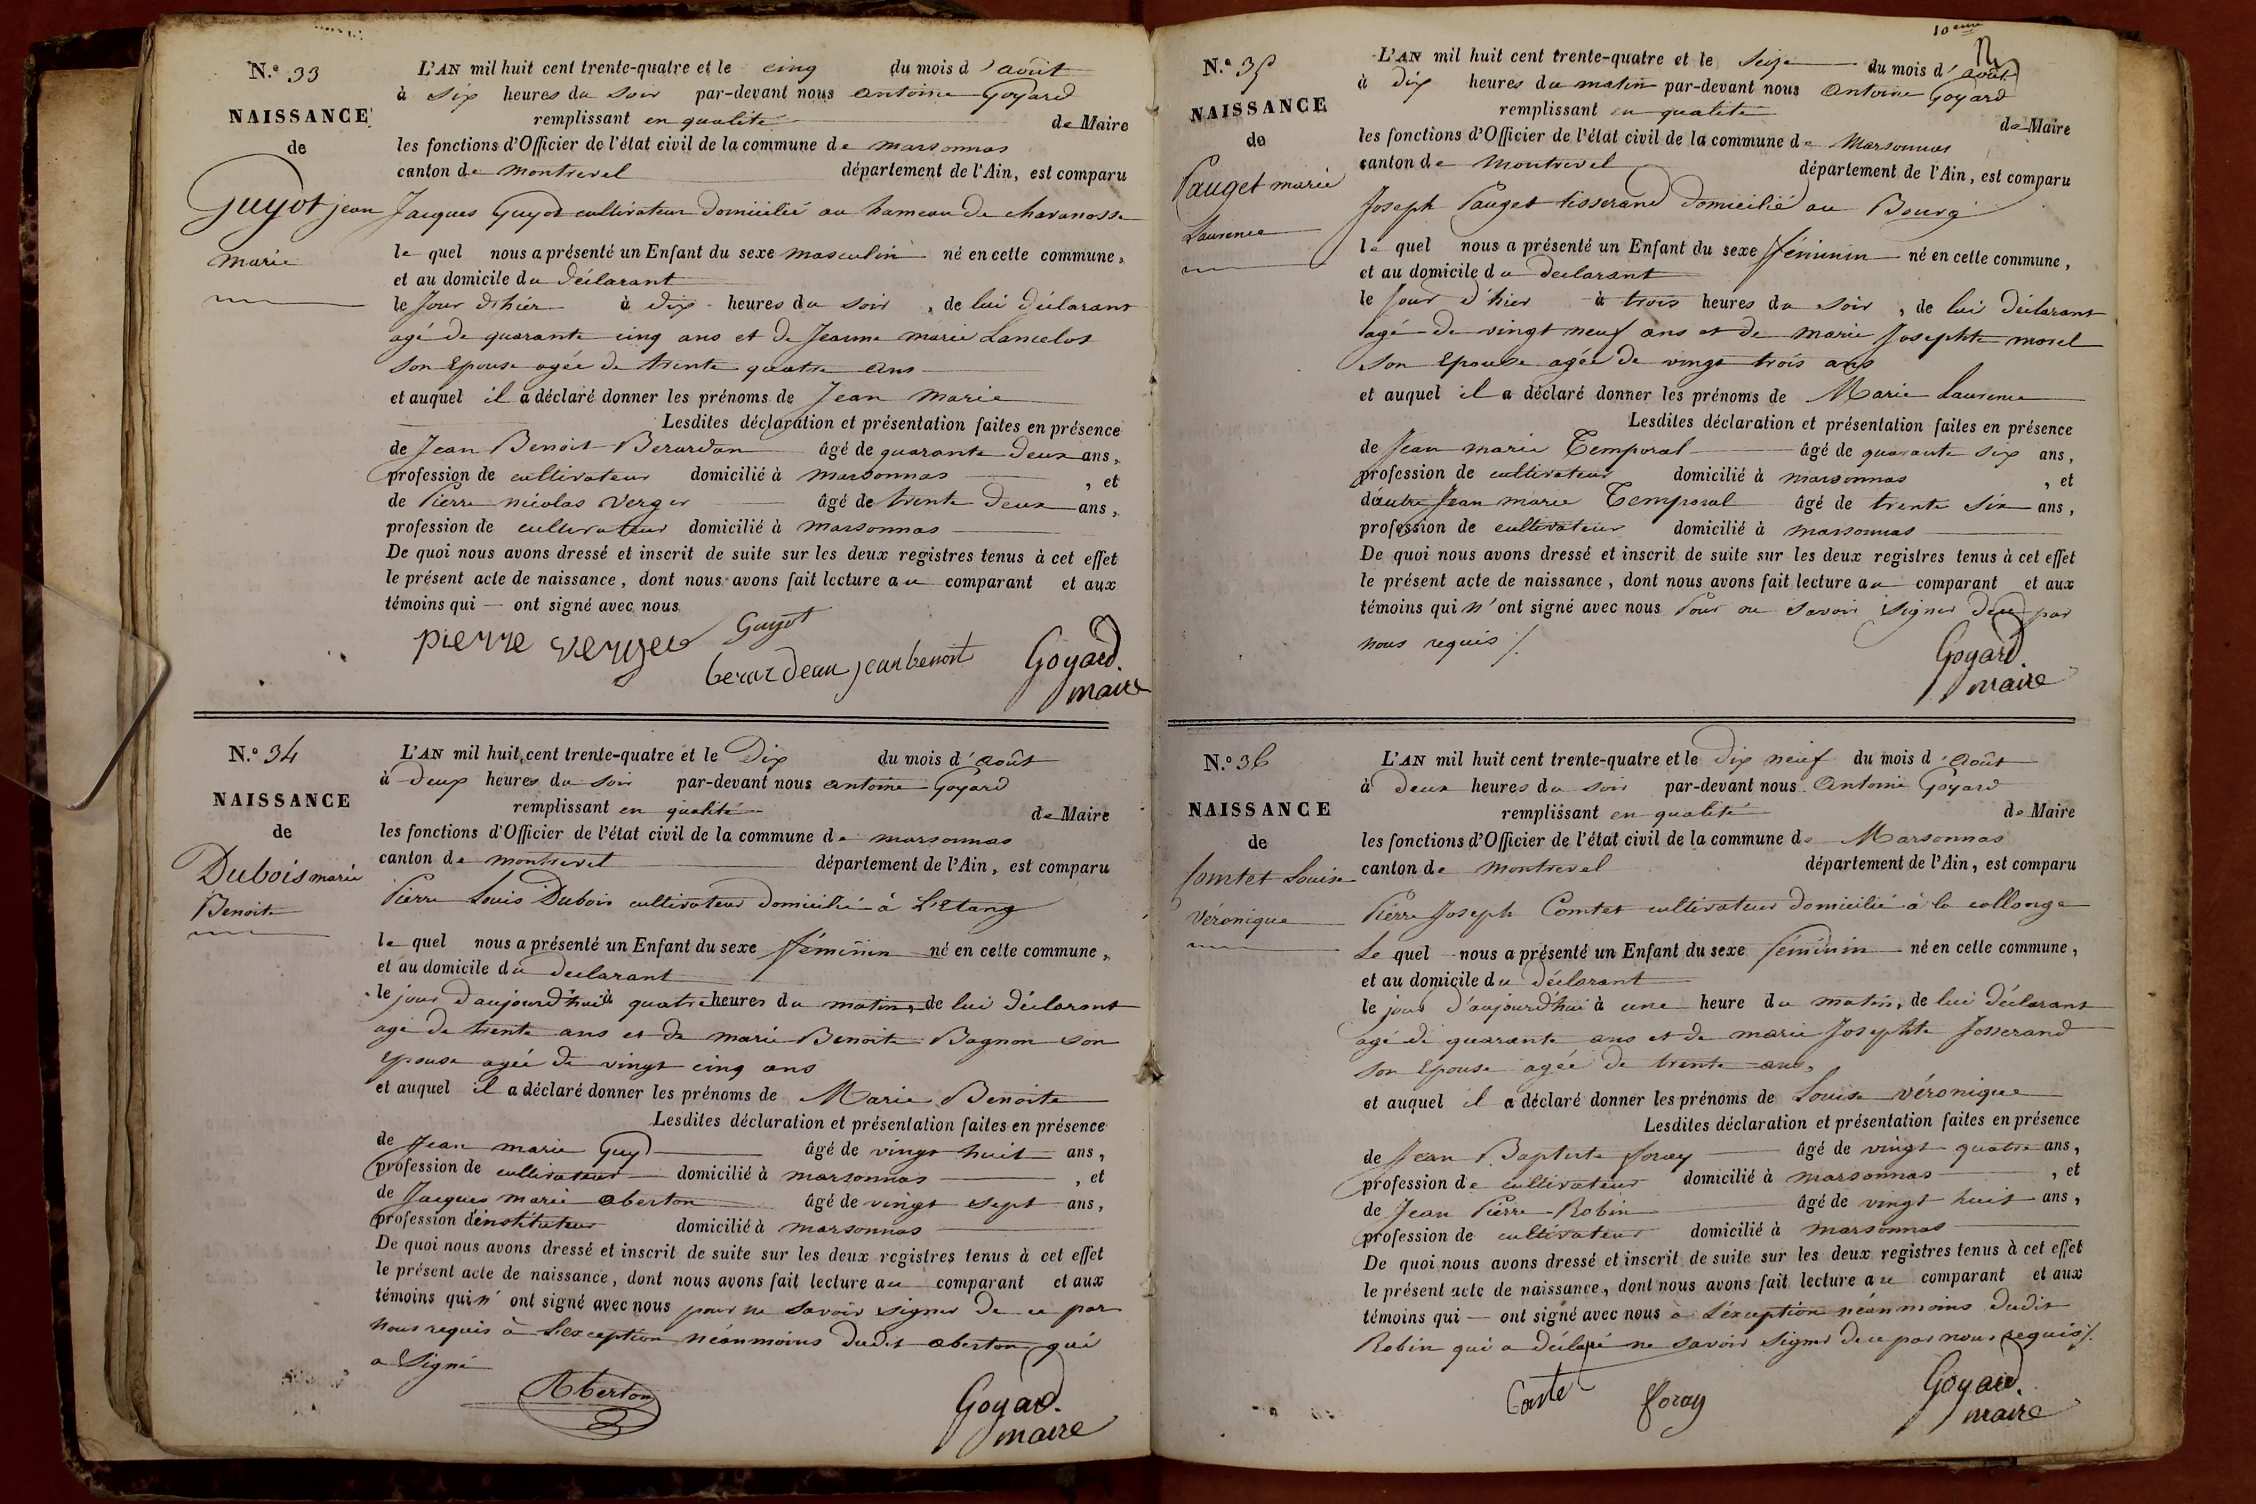 N.º 33
NAISSANCE
de
Guyot jean
marie
L'AN mil huit cent trente-quatre et le cinq du mois d'août
à six heures du soir par-devant nous antoine Goyard
remplissant en qualité de Maire
les fonctions d'Officier de l'état civil de la commune de marsonnas
canton de montrevel département de l'Ain, est comparu
Jacques Guyot cultivateur domicilié au hameau de charanosse
le quel nous a présenté un Enfant du sexe masculin né en cette commune,
et au domicile du déclarant
le Jour d'hier à dix heures du soir, de lui déclarant
agé de quarante cinq ans et de Jeanne marie Lancelot
son Epouse agée de trente quatre ans
et auquel il a déclaré donner les prénoms de Jean Marie
Lesdites déclaration et présentation faites en présence
de Jean Benoit Berardan âgé de quarante deux ans,
profession de cultivateur domicilié à marsonnas, et
de Pierre nicolas Verger âgé de trente deux ans,
profession de cultivateur domicilié à marsonnas
De quoi nous avons dressé et inscrit de suite sur les deux registres tenus à cet effet
le présent acte de naissance, dont nous avons fait lecture au comparant et aux
témoins qui — ont signé avec nous
pierre verger Guyot
berardean jean benoit Goyard
maire
N.º 34
NAISSANCE
de
Dubois marie
Benoite
L'AN mil huit cent trente-quatre et le Dix du mois d'août
à deux heures du soir par-devant nous antoine Goyard
remplissant en qualité de Maire
les fonctions d'Officier de l'état civil de la commune de marsonnas
canton de montrevel département de l'Ain, est comparu
Pierre Louis Dubois cultivateur domicilié à L'Etang
le quel nous a présenté un Enfant du sexe féminin né en cette commune,
et au domicile du declarant
le jour d'aujourd'hui à quatre heures du matin, de lui déclarant
agé de trente ans et de marie Benoite Bagnon son
epouse agée de vingt cinq ans
et auquel il a déclaré donner les prénoms de Marie Benoite
Lesdites déclaration et présentation faites en présence
de Jean marie Guy âgé de vingt huit ans,
profession de cultivateur domicilié à marsonnas, et
de Jacques marie aberton âgé de vingt sept ans,
profession d'instituteur domicilié à marsonnas
De quoi nous avons dressé et inscrit de suite sur les deux registres tenus à cet effet
le présent acte de naissance, dont nous avons fait lecture au comparant et aux
témoins qui n'ont signé avec nous pour ne savoir signer de ce par
nous requis à l'exception néanmoins dudit aberton qui
a signé
Aberton Goyard.
maire
10eme
N.º 35
NAISSANCE
de
Pauget marie
Laurence
L'AN mil huit cent trente-quatre et le seize du mois d'août
à dix heures du matin par-devant nous antoine Goyard
remplissant en qualité de Maire
les fonctions d'Officier de l'état civil de la commune de Marsonnas
canton de montrevel département de l'Ain, est comparu
Joseph Pauget tisserand domicilié au Bourg
le quel nous a présenté un Enfant du sexe féminin né en cette commune,
et au domicile du declarant
le jour d'hier à trois heures du soir, de lui déclarant
agé de vingt neuf ans et de marie Josephte morel
son Epouse agée de vingt trois ans
et auquel il a déclaré donner les prénoms de Marie Laurence
Lesdites déclaration et présentation faites en présence
de Jean marie Temporal âgé de quarante six ans,
profession de cultivateur domicilié à marsonnas, et
d'autre Jean marie Temporal âgé de trente six ans,
profession de cultivateur domicilié à marsonnas
De quoi nous avons dressé et inscrit de suite sur les deux registres tenus à cet effet
le présent acte de naissance, dont nous avons fait lecture au comparant et aux
témoins qui n'ont signé avec nous Pour ne savoir signer de ce par
nous requis ./.
Goyard.
maire
N.º 36
NAISSANCE
de
Comtet Louise
Véronique
L'AN mil huit cent trente-quatre et le dix neuf du mois d'août
à deux heures du soir par-devant nous Antoine Goyard
remplissant en qualité de Maire
les fonctions d'Officier de l'état civil de la commune de Marsonnas
canton de montrevel département de l'Ain, est comparu
Pierre Joseph Comtet cultivateur domicilié à la collonge
Le quel nous a présenté un Enfant du sexe féminin né en cette commune,
et au domicile du déclarant
le jour d'aujourd'hui à une heure du matin, de lui déclarant
agé de quarante ans et de marie Josephte Josserand
son Epouse agée de trente ans,
et auquel il a déclaré donner les prénoms de Louise véronique
Lesdites déclaration et présentation faites en présence
de Jean Baptiste foray âgé de vingt quatre ans,
profession de cultivateur domicilié à marsonnas, et
de Jean Pierre Robin âgé de vingt huit ans,
profession de cultivateur domicilié à marsonnas
De quoi nous avons dressé et inscrit de suite sur les deux registres tenus à cet effet
le présent acte de naissance, dont nous avons fait lecture au comparant et aux
témoins qui — ont signé avec nous à l'éxception néanmoins dudit
Robin qui a déclaré ne savoir signer de ce par nous requis ./.
Contet foray Goyard.
maire